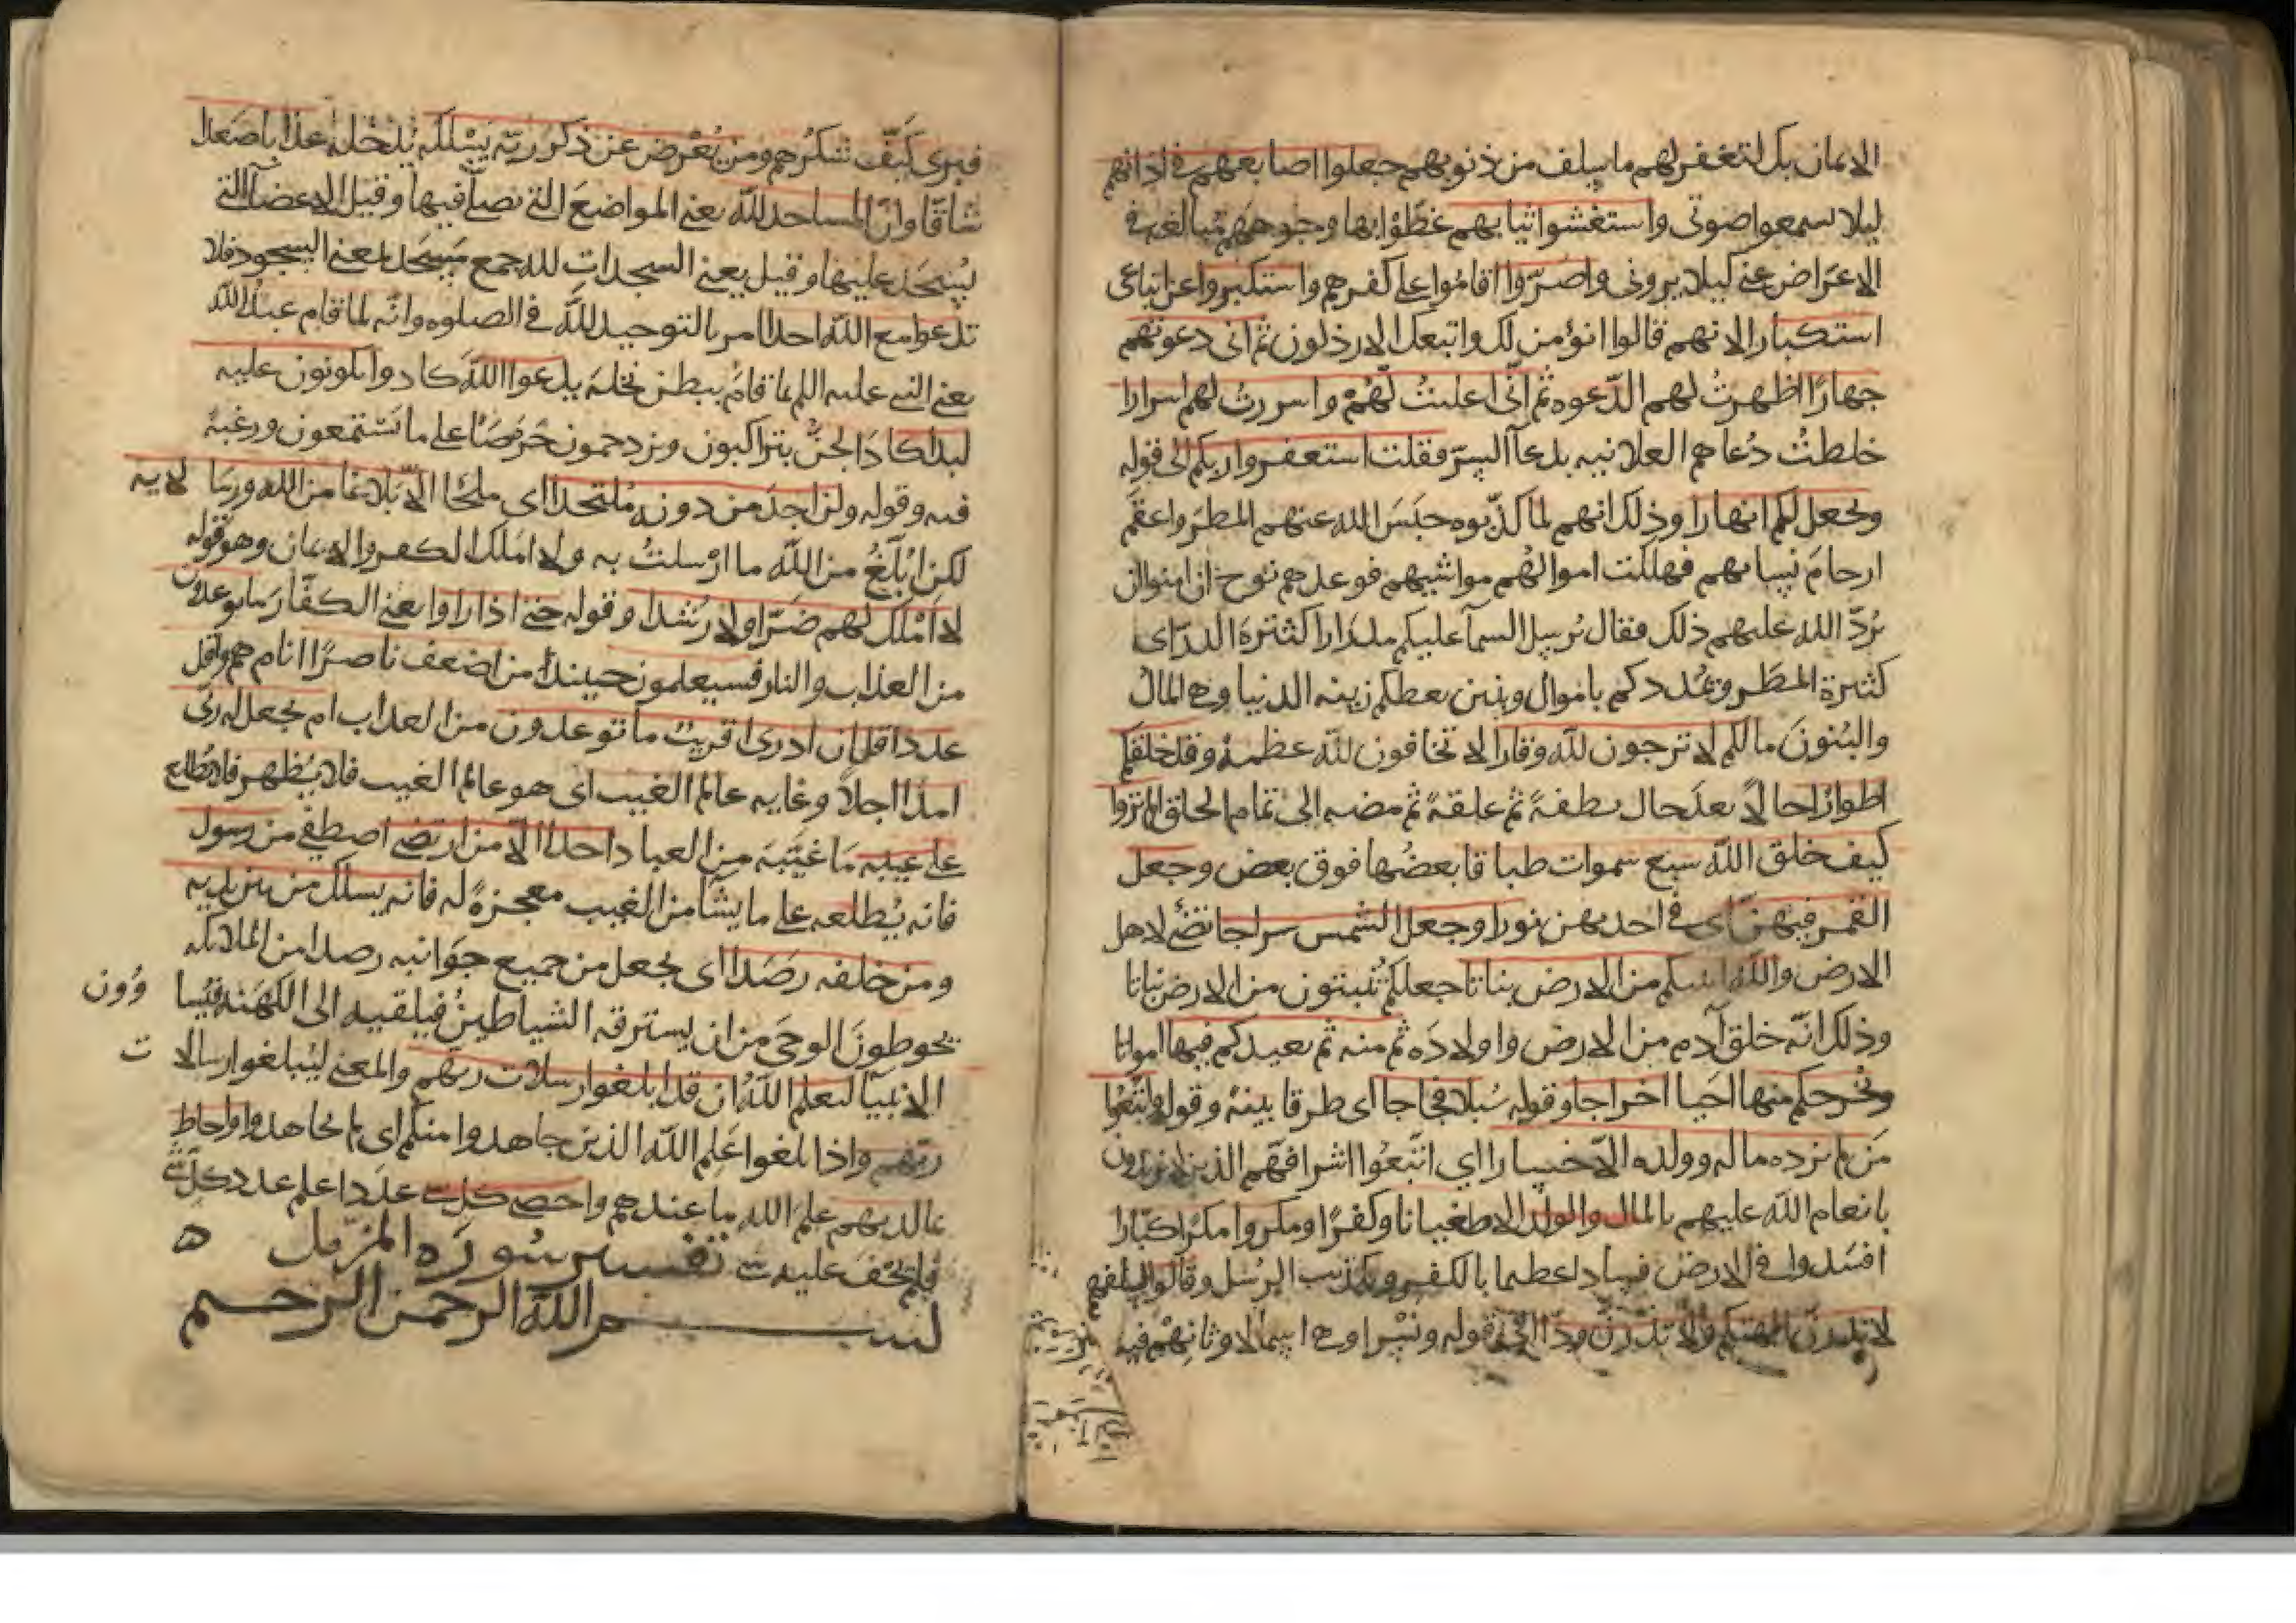 الايمان بك لتغفر لهم ما سلف من ذنوبهم جعلوا اصابعهم في اذانهم
ليلا يسمعوا صوتي واستغشوا ثيابهم غطوا بها وجوههم مبالغة في
الاعراض عني كيلا يروني واصروا اقاموا على كفرهم واستكبروا عن اتباعي
استكبارا لانهم قالوا انؤمن لك واتبعك الارذلون ثم اني دعوتهم
جهارا اظهرت لهم الدعوه ثم اني اعلنت لهم واسررت لهم اسرارا
خلطت دعاهم العلانيه بدعآ السر فقلت استغفروا ربكم الى قوله
ويجعل لكم انهارا وذلك انهم لما كذبوه حبس الله عنهم المطر واعقم
ارحام نسايهم فهلكت اموالهم مواشيهم فوعدهم نوح ان امنوا ان
يرد الله عليهم ذلك فقال يرسل السمآ عليكم مدرارا كثيرة الدر اى
كثيرة المطر ويمددكم باموال وبنين يعطكم زينه الدنيا وهي المال
والبنون مالكم لا ترجون لله وقارا لا تخافون لله عظمة وقد خلقكم
اطوارا حالا بعد حال نطفة ثم علقة ثم مضغه الى تمام الخلق الم تروا
كيف خلق الله سبع سموات طباقا بعضها فوق بعض وجعل
القمر فيهن اى في احديهن نورا وجعل الشمس سراجا تضئ لاهل
الارض والله انبتكم من الارض نباتا جعلكم تنبتون من الارض نباتا
وذلك انه خلق آدم من الارض واولاده ثم منه ثم يعيدكم فيها امواتا
ويخرجكم منها احيا اخراجا وقوله سبلا فجاجا اى طرقا بينة وقوله واتبعوا
من لم يزده ماله وولده الا خسارا اي اتبعوا اشرافهم الذين لا يزيدون
بانعام الله عليهم بالمال والولد الا طغيانا وكفرا ومكروا مكرا كبارا
افسدوا في الارض فسادا عظيما بالكفر وتكذيب الرسل وقالوا لسفلتهم
لا تذرن الهتكم ولا تذرن ودا الى قوله ونسرا وهي اسما لاوثانهم
فيرى كيف شكرهم ومن يعرض عن ذكر ربه يسلكه يدخله عذابا صعدا
شاقا وان المساجد لله يعني المواضع التي يصلى فيها وقيل الاعضآ التي
يسجد عليها وقيل يعني السجدات لله جمع مسجد بمعنى السجود فلا
تدعوا مع الله احدا امر بالتوحيد لله في الصلوه وانه لما قام عبد الله
يعني النبي عليه السلم لما قام ببطن نخلة يدعوا الله كادوا يكونون عليه
لبدا كاد الجن يتراكبون ويزدحمون حرصا على ما يستمعون ورغبة
فيه وقوله ولن اجد من دونه ملتحدا اى ملجا الا بلاغا من الله ورسالاته
لكن ابلغ من الله ما ارسلت به ولا املك الكفر والايمان وهو قوله
لا املك لهم ضرا ولا رشدا وقوله حتى اذا راوا يعني الكفار ما يوعدون
من العذاب والنار فسيعلمون حينئذ من اضعف ناصرا انا ام هم واقل
عددا قل ان ادرى اقريب ما توعدون من العذاب ام يجعل له ربى
امدا اجلا وغايه عالم الغيب اى هو عالم الغيب فلا يظهر فلا يطلع
على غيبه ما غيبه من العباد احدا الا من ارتضى اصطفى من رسول
فانه يطلعه على ما يشآ من الغيب معجزة له فانه يسلك من بين يديه
ومن خلفه رصدا اى يجعل من جميع جوانبه رصدا من الملايكه
يحوطون الوحى من ان يسترقه الشياطين فيلقيه الى الكهنة فيساوون
الانبيآ ليعلم الله ان قد ابلغوا رسالات ربهم والمعنى ليبلغوا رسالات
ربهم واذا بلغوا علم الله الذين جاهدوا منكم اى لم يجاهدوا واحاط
بما لديهم علم الله ما عندهم واحصى كل شى عددا علم عدد كل شى
فلم يخف عليه شى تفسير سوره المزمل ه
بسم الله الرحمن الرحيم